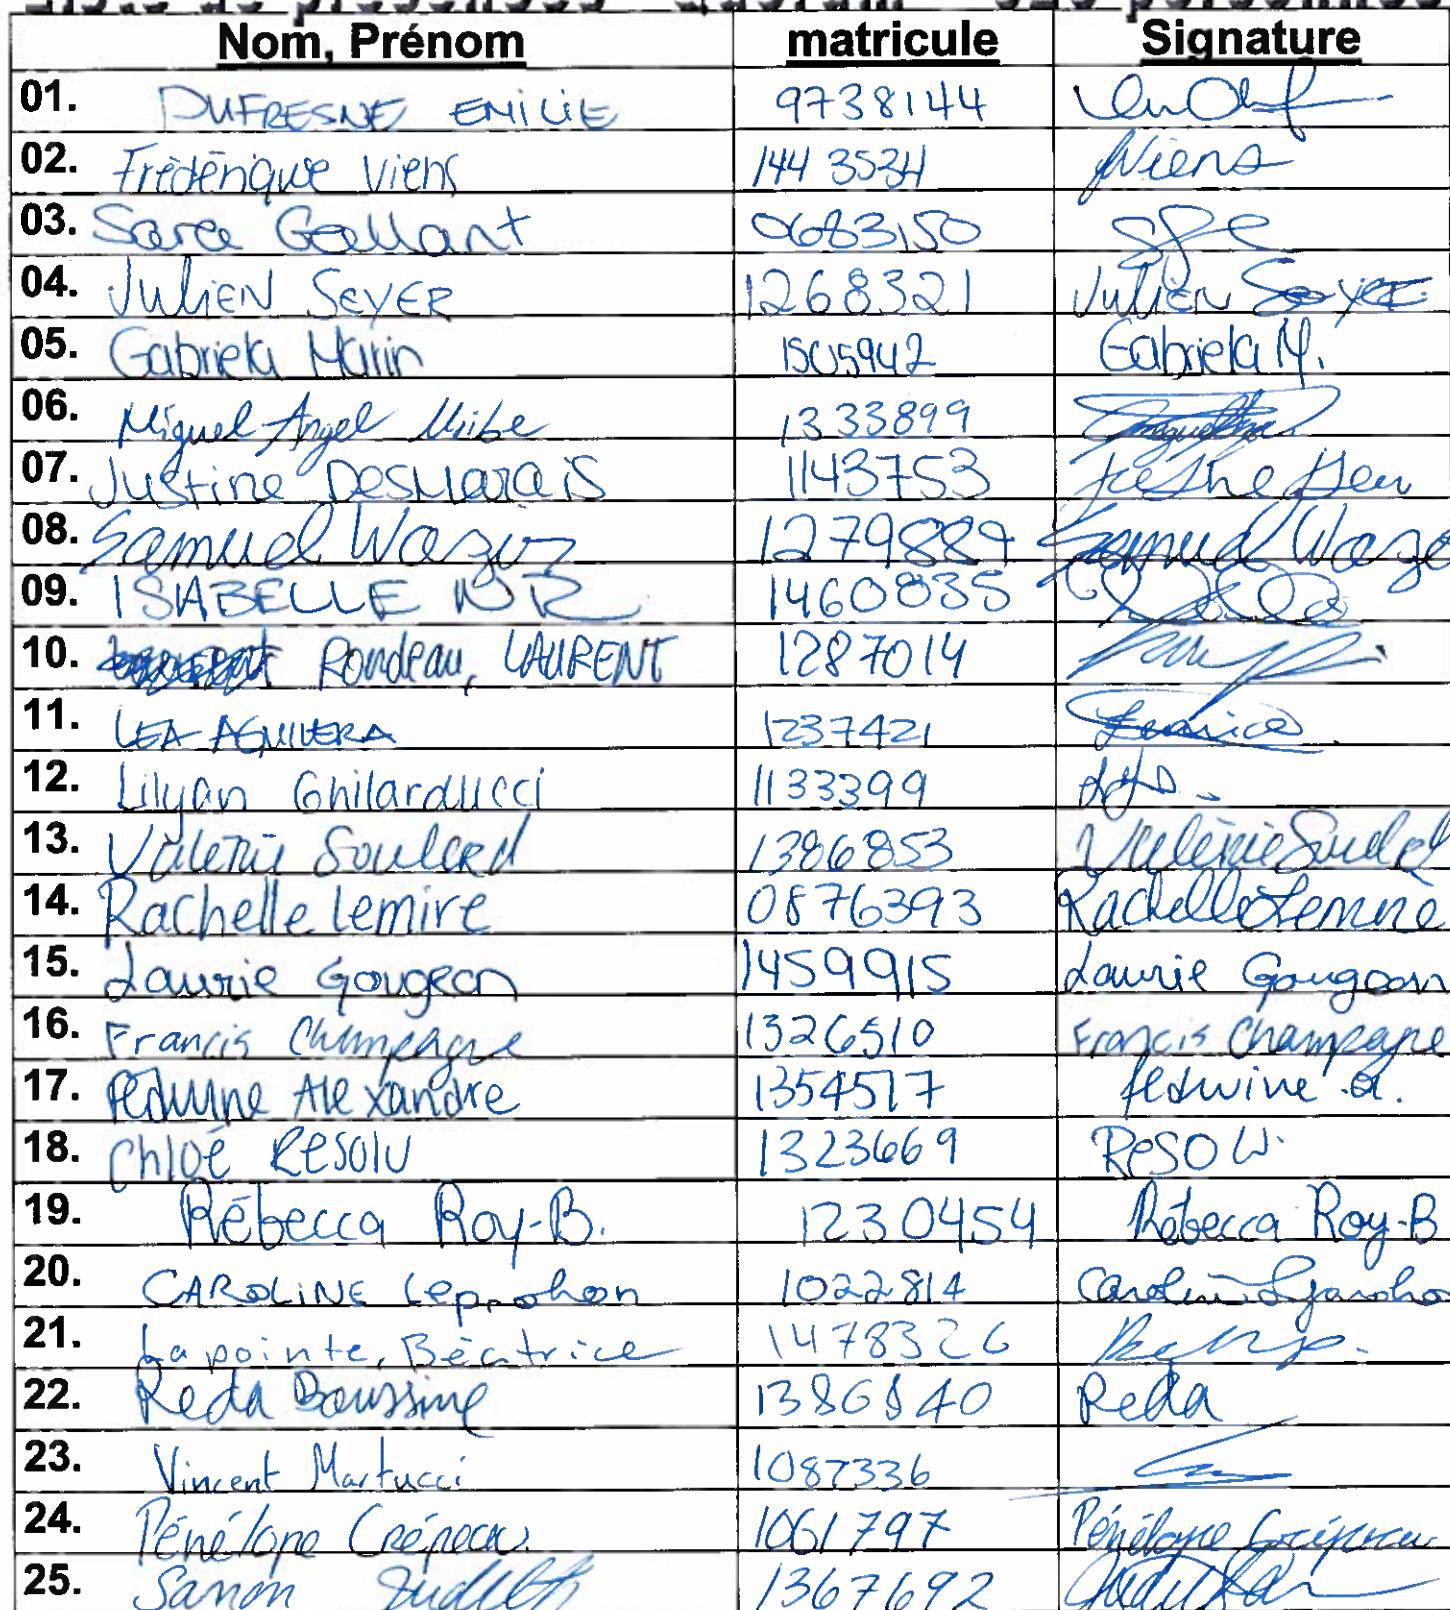 Liste de présences Quorum 320 personnes
Nom, Prénom matricule Signature
01. DUFRESNE EMILIE 9738144
02. Frédérique Viens 1443534 Viens
03. Sara Gallant 0683150
04. JULIEN SEYER 1268321 Julien Seyer
05. Gabriela Marin 1505942 Gabriela M.
06. Miguel Angel 1333899
07. Justine Desmarais 1143753 Justine
08. Samuel 1279889 Samuel
09. ISABELLE 1460835
10. Rondeau, LAURENT 1287014
11. LEA AGUILERA 1237421
12. Lilyan Ghilarducci 1133399
13. Valérie Soulard 1386853 Valérie
14. Rachelle Lemire 0876393 Rachelle Lemire
15. Laurie Gougeon 1459915 Laurie Gougeon
16. Francis Champagne 1326510 Francis Champagne
17. Fedwine Alexandre 1354517 fedwine a.
18. Chloé Resolu 1323669 Resolu
19. Rébecca Roy-B. 1230454 Rébecca Roy-B
20. CAROLINE Leprohon 1022814
21. Lapointe, Béatrice 1478326
22. Reda Boussine 1386840 Reda
23. Vincent Martucci 1087336
24. Pénélope Crépeau 1061797 Pénélope Crépeau
25. Sanon Judith 1367692